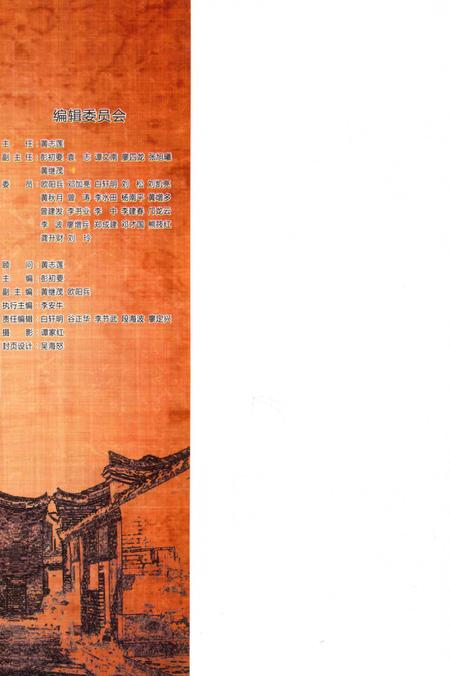 编辑委员会
主 任：黄志莲
副 主 任：彭初要 袁 志 谭文南 廖四龙 张旭曦
黄继茂
委 员：欧阳兵 邓加亮 白轩明 刘 松 刘凯亮
黄秋月 曾 涛 李水田 杨南平 黄增多
曾建发 李书业 李 中 李建春 邝龙云
李 波 廖增兵 郑成建 邓才国 熊薇红
龚升财 刘 玲
顾 问：黄志莲
主 编：彭初要
副 主 编：黄继茂 欧阳兵
执行主编：李安牛
责任编辑：白轩明 谷正华 李节武 段海波 廖定兴
摄 影：谭家红
封页设计：吴海怒